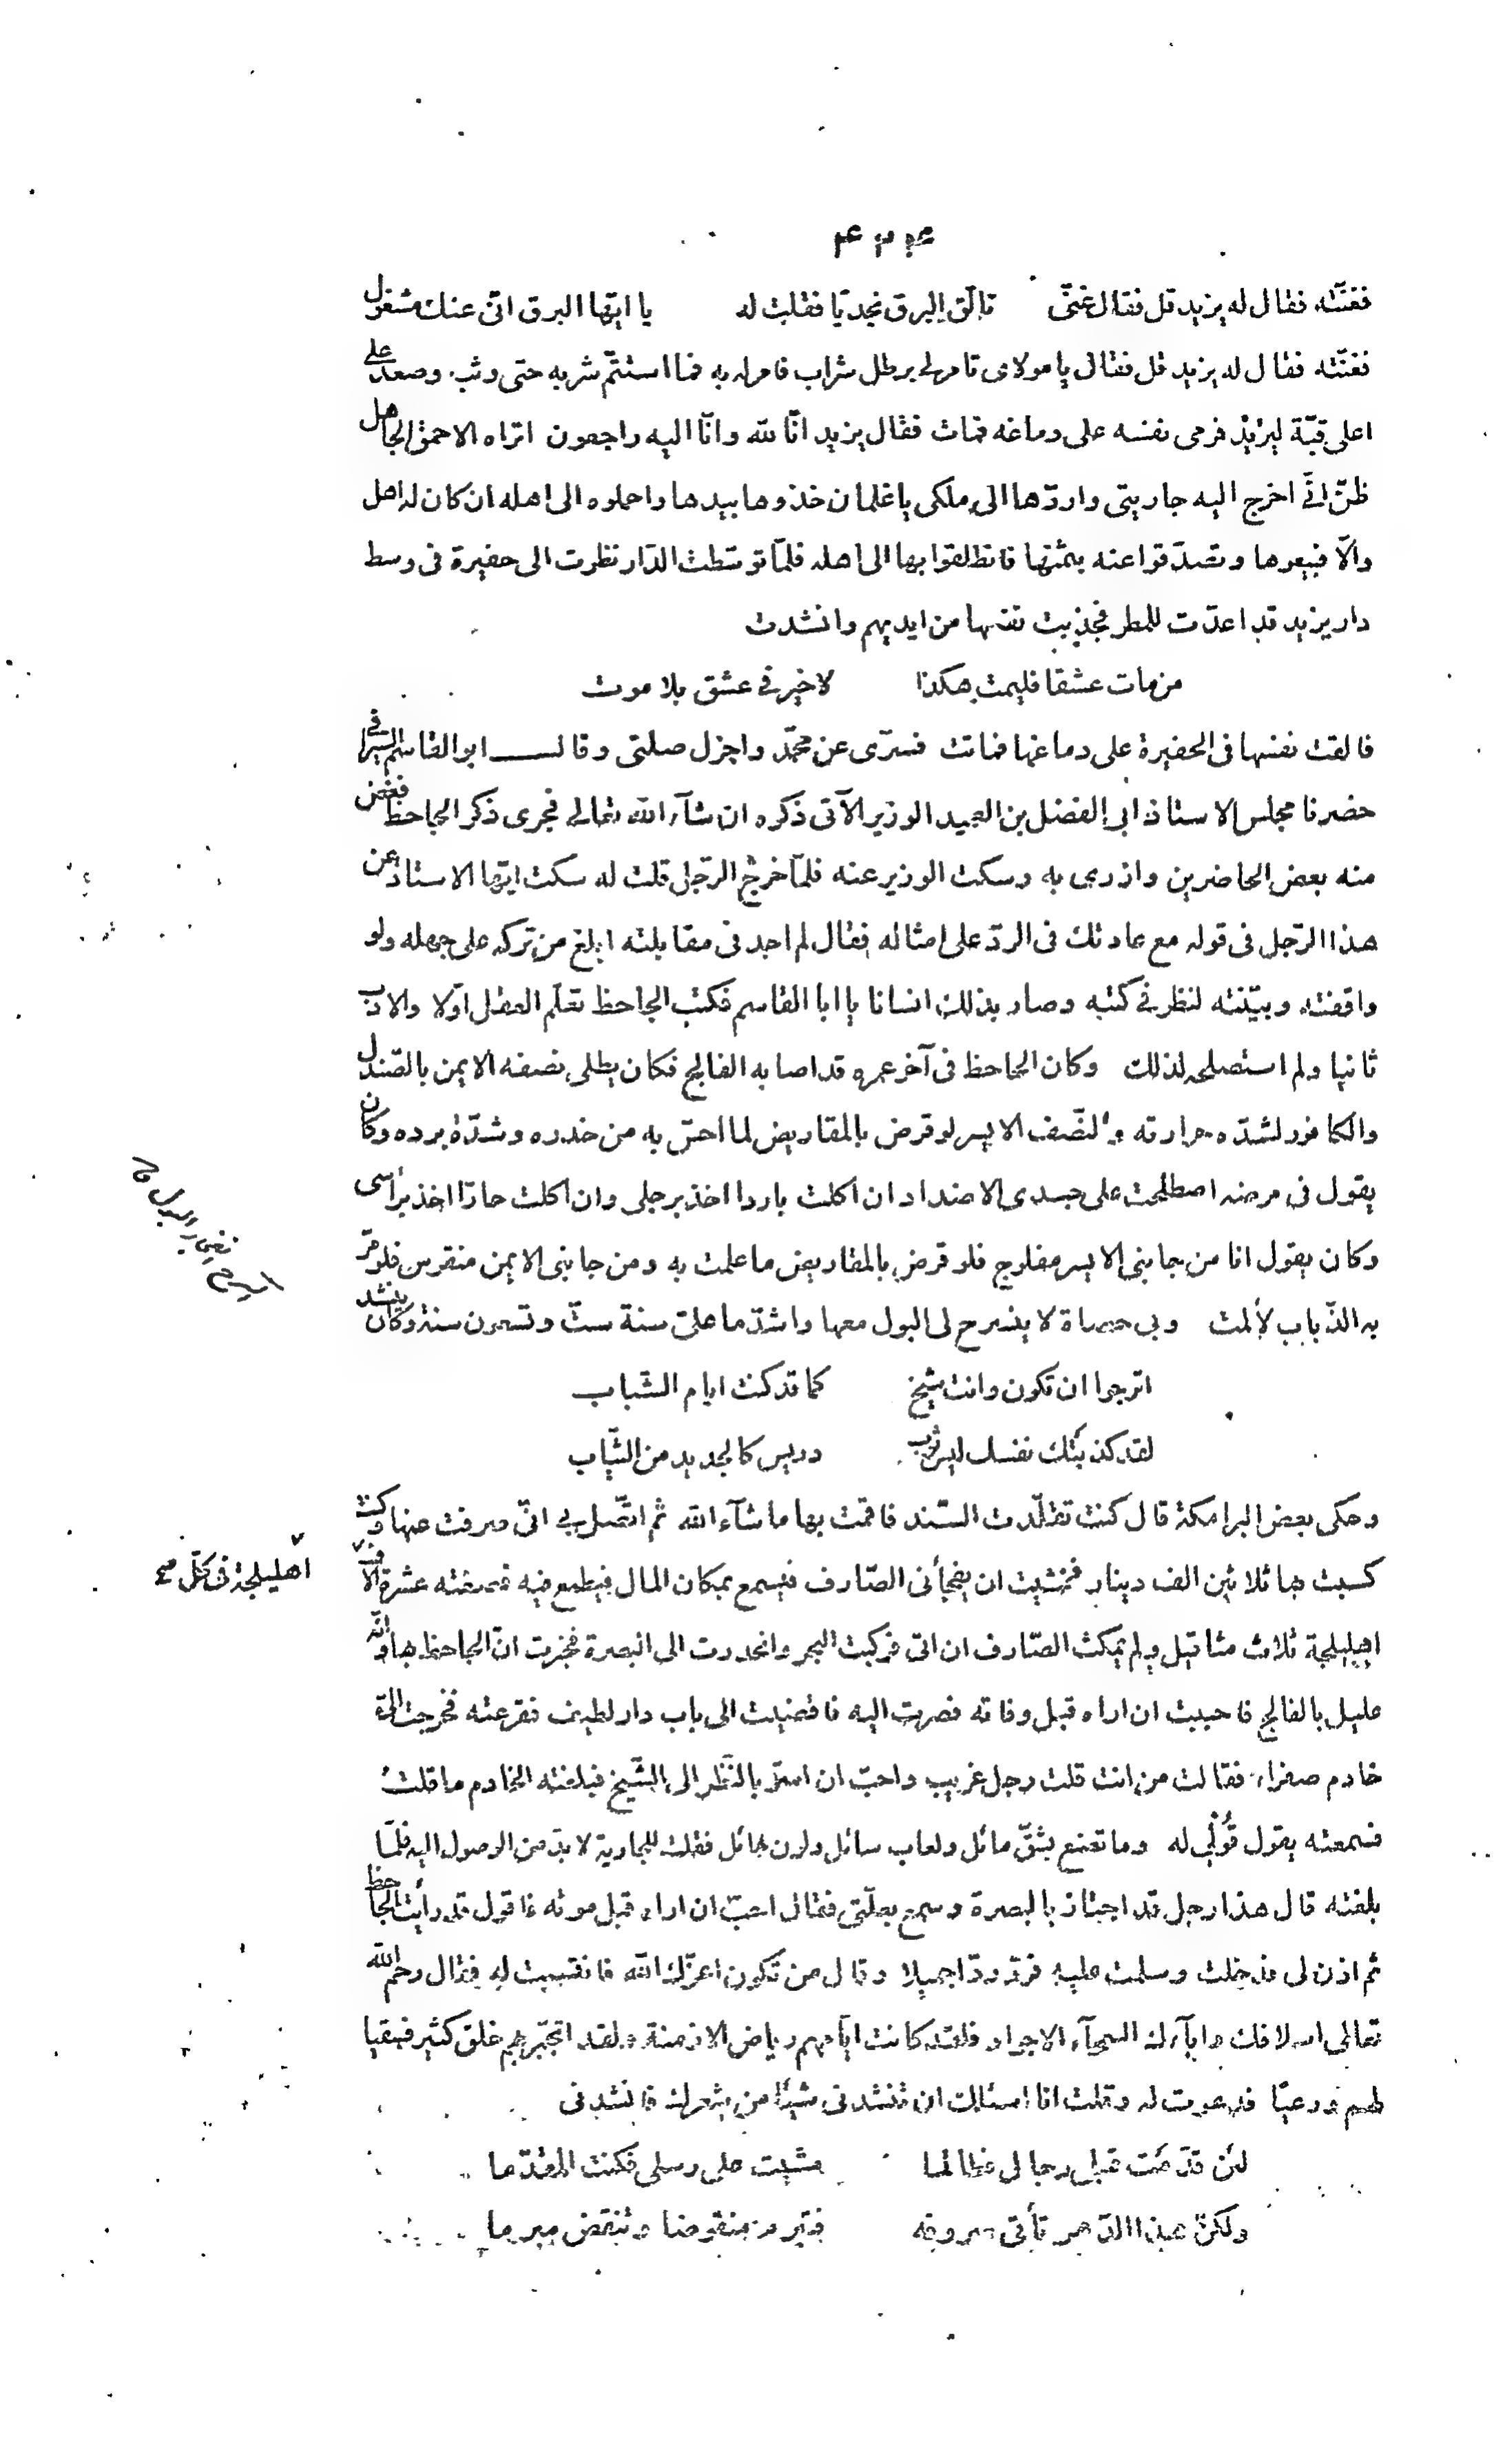 فغنّته فقال له يزيد قل فقال غنّى تالّق البرق نجديّا فقلت له يا ايّها البرق انّى عنك مشغول
فغنّته فقال له يزيد قل فقال يا مولاى تامر لى برطل شراب فامر له به فما استتمّ شربه حتى وثب وصعد على
اعلى قبّة ليزيد فرمى نفسه على دماغه فمات فقال يزيد انّا لله وانّا اليه راجعون اتراه الاحمق الجاهل
ظنّ انّى اخرج اليه جاريتى واردّها الى ملكى يا غلمان خذوها بيدها واحملوه الى اهله ان كان له اهل
والّا فبيعوها وتصدّقوا عنه بثمنها فانطلقوا بها الى اهله فلمّا توسّطت الدّار نظرت الى حفيرة فى وسط
دار يزيد قد اعدّت للمطر فجذبت نفسها من ايديهم وانشدت
من مات عشقا فليمت هكذا لا خير فى عشق بلا موت
فالقت نفسها فى الحفيرة على دماغها فماتت فسرّى عن محمّد واجزل صلتى وقال ابو القاسم السيرافى
حضرنا مجلس الاستاذ ابى الفضل بن العميد الوزير الآتى ذكره ان شآء الله تعالى فجرى ذكر الجاحظ فغض
منه بعض الحاضرين وازرى به وسكت الوزير عنه فلمّا خرج الرّجل قلت له سكت ايّها الاستاذ عن
هذا الرّجل فى قوله مع عادتك فى الردّ على امثاله فقال لم اجد فى مقابلته ابلغ من تركه على جهله ولو
واقفته وبيّنته لنظر فى كتبه وصار بذلك انسانا يا ابا القاسم فكتب الجاحظ تعلّم العقل اوّلا والادب
ثانيا ولم استصلحه لذلك وكان الجاحظ فى آخر عمره قد اصابه الفالج فكان يطلى نصفه الايمن بالصّندل
والكافور لشدّه حرارته والنّصف الايسر لو قرض بالمقاريض لما احسّ به من خدره وشدّة برده وكان
يقول فى مرضه اصطلحت على جسدى الاضداد ان اكلت باردا اخذ برجلى وان اكلت حارّا اخذ برأسى
وكان يقول انا من جانبى الايسر مفلوج فلو قرض بالمقاريض ما علمت به ومن جانبى الايمن منقرس فلو مرّ
به الذّباب لألمت وبى حصاة لا ينسرح لى البول معها واشدّ ما علىّ سنة ستّ وتسعون سنة وكان ينشد
اترجوا ان تكون وانت شيخ كما قد كنت ايام الشّباب
لقد كذبتك نفسك ليس ثوب دريس كالجديد من الثّياب
وحكى بعض البرامكة قال كنت تقلّدت السّند فاقمت بها ما شآء الله ثم اتّصل بى انّى صرفت عنها وكنت
كسبت بها ثلاثين الف دينار فخشيت ان يفجأنى الصّارف فيسمع بمكان المال فيطمع فيه فصغته عشرة آلاف
اهليلجة ثلاث مثاقيل ولم يمكث الصّارف ان اتى فركبت البحر وانحدرت الى البصرة فخبرت انّ الجاحظ بها وانّه
عليل بالفالج فاحببت ان اراه قبل وفاته فصرت اليه فافضيت الى باب دار لطيف فقرعته فخرجت الىّ
خادم صفراء فقالت من انت قلت رجل غريب واحبّ ان اسرّ بالنّظر الى الشّيخ فبلغته الخادم ما قلت
فسمعته يقول قولى له وما تصنع بشقّ مائل ولعاب سائل ولون حائل فقلت للجارية لا بدّ من الوصول اليه فلمّا
بلغته قال هذا رجل قد اجتاز بالبصرة وسمع بعلّتى فقال احبّ ان اراه قبل موته فاقول قد رأيت الجاحظ
ثم اذن لى فدخلت وسلمت عليه فردّ ردّا جميلا وقال من تكون اعزّك الله فانتسبت له فقال رحم الله
تعالى اسلافك وابآءك السمحآء الاجواد فلقد كانت ايّامهم رياض الازمنة ولقد انجبر بهم خلق كثير فسقيا
لهم ورعيا فدعوت له وقلت انا اسئالك ان تنشدنى شيئا من شعرك فانشدنى
لئن قدّمت قبلى رجال فطالما مشيت على رسلى فكنت المقدّما
ولكنّ هذا الدّهر تأتى صروفه فتبرم منقوضا وتنقض مبرما
اهليلجة فى كلّ صح